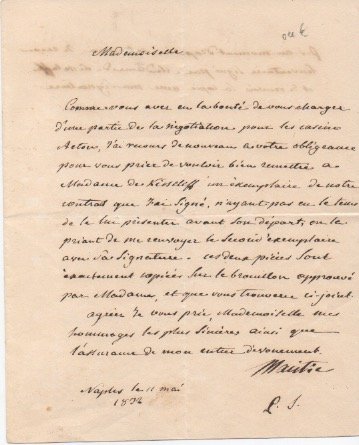 Mademoiselle
Comme vous avez eu la bonté de vous charger
d'une partie de la négotiation pour les casins
Acton, J'ai recours de nouveau a votre obligeance
pour vous prier de vouloir bien remettre a
Madame de un exemplaire de notre
contrat que J'ai Signé, n'ayant pas eu le tems
de le lui présenter avant son départ, en la
priant de me renvoyer le Second exemplaire
avec Sa Signature. ces deux pièces Sont
exactement copiées Sur le brouillon approuvé
par Madame, et que vous trouverez ci-joint
agréez Je vous prie Mademoiselle mes
hommages les plus Sincères ainsi que
l'assurance de mon entier dévouement.
Naples le 11 mai